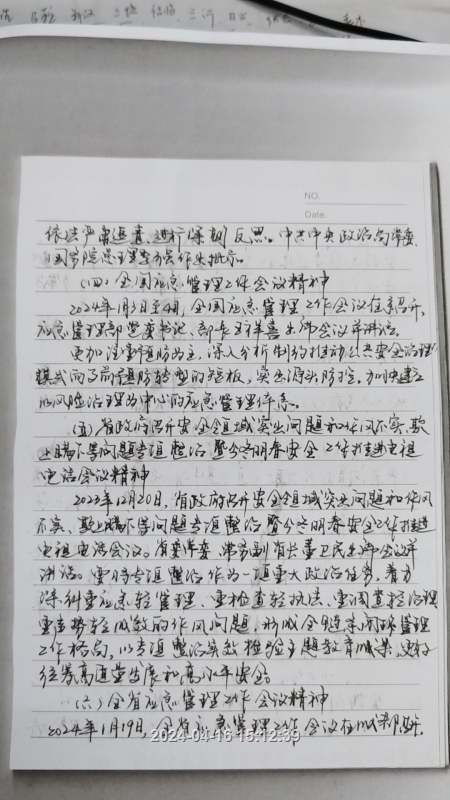 NO.
Date.
依法严肃追责，进行深刻反思。中共中央政治局常委
国务院总理李强作出批示。
(四)全国应急管理工作会议精神
2024年1月3日至4日，全国应急管理工作会议在京召开，
应急管理部党委书记、部长王祥喜出席会议并讲话。
更加注重预防为主，深入分析制约推动公共安全治理
模式向事前预防转型的短板，突出源头防控，加快建立
以风险治理为中心的应急管理体系。
(五)省政府召开安全领域突出问题和作风不实、欺
上瞒下等问题专项整治暨今冬明春安全工作推进电视
电话会议精神
2023年12月20日，省政府召开安全领域突出问题和作风
不实、欺上瞒下等问题专项整治暨今冬明春安全工作推进
电视电话会议。省委常委、常务副省长董卫民出席会议并
讲话。要将专项整治作为一项重大政治任务，着力
深纠重应急轻管理、重检查轻执法、重调查轻治理
重声势轻成效的作风问题，形成全链条闭环管理
工作格局，以专项整治实效检验主题教育成果，更好
统筹高质量发展和高水平安全。
(六)全省应急管理工作会议精神
2024年1月19日，全省应急管理工作会议在成都召开。
2024-04-16 15:12:39